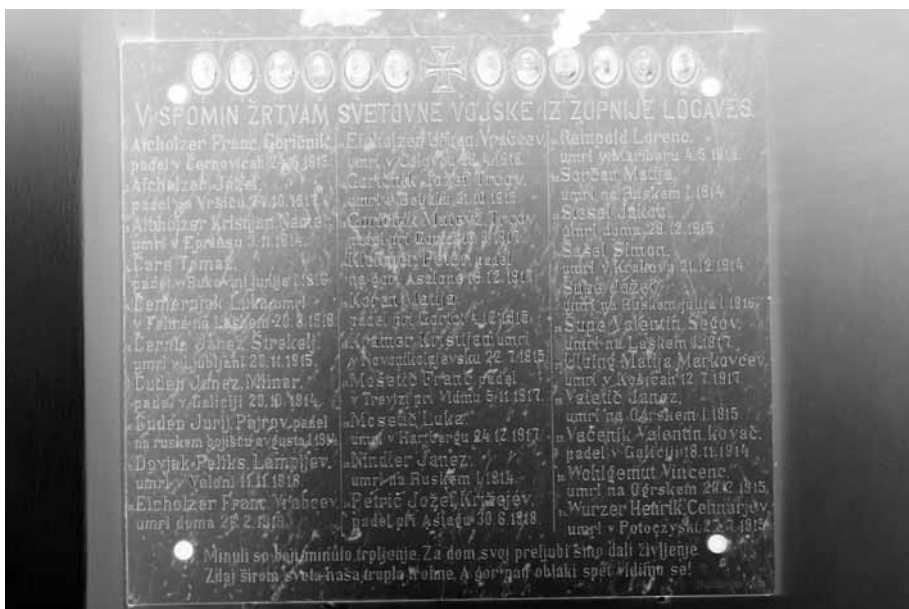 V SPOMIN ŽRTVAM SVETOVNE VOJSKE IZ ŽUPNIJE LOGAVES.
Aicholzer Franc, Goričnik,
padel v Černovicah
Aicholzer Jožef,
padel na Vršiču 24.10.1917.
Altholzer Kristijan,
umrl v 3.11.1914.
Care Tomaž,
padel v Bukovini junija l. 1916
Čemernjak Luka, umrl
v Felice na Laškem 20.8.1918
Černic Janez, Štrekelj,
umrl v Ljubljani 23.11.1915.
Duden Janez, Mlinar,
padel v Galiciji 20.10.1914.
Duden Jurij, Pajrov, padel
na ruskem bojišču avgusta l. 1914
Dovjak Feliks, Lampijev,
umrl v 11.11.1918.
Eicholzer Franc, Vrabčev,
umrl doma
Eicholzer
umrl v
Goričnik Jožef Trdav.
umrl v 31.10.1915
Goričnik Matevž Trdav,
Klemmer Peter, padel
na gori Asalone 16.12.1917
Košan Matija
padel pri Gorici 4.12.1915.
Kramer Kristijan umrl
v Novonikolajevsku 22.7.1915
Mošetič Franc padel
v Travizi pri Vidmu 5.11.1917.
Mosetič Luka,
umrl v Hartbergu 24.12.1917
Nindler Janez,
umrl na Ruskem l. 1914
Petrič Jožef, Križejev,
padel pri Asiagu 30.6.1918.
Reinpold Lorenc,
umrl v Mariboru
Sorčan Matija,
umrl na Ruskem l. 1914
Stesel Jakob,
umrl doma, 29.12.1915
Sašel Simon,
umrl v Krakovo 21.12.1914.
Supe Jožef,
umrl na Ruskem julija l. 1916.
Supe Valentin Šegov,
umrl na Laškem l. 1917.
Ulbing Matija Markovčev,
umrl v Košicah 12.7.1917.
Valetič Janez,
umrl na Ogrskem l. 1915
Vačenik Valentin, kovač,
padel v Galiciji 18.11.1914
Wohlgemut Vincenc,
umrl na Ogrskem 29.12.1915,
Wurzer Henrik, Cehnarjov
umrl v Potoczyski
Minuli so boji, minulo trpljenje. Za dom svoj preljubi smo dali življenje
Zdaj širom sveta naša trupla trohne. A gor nad oblaki spet vidimo se!